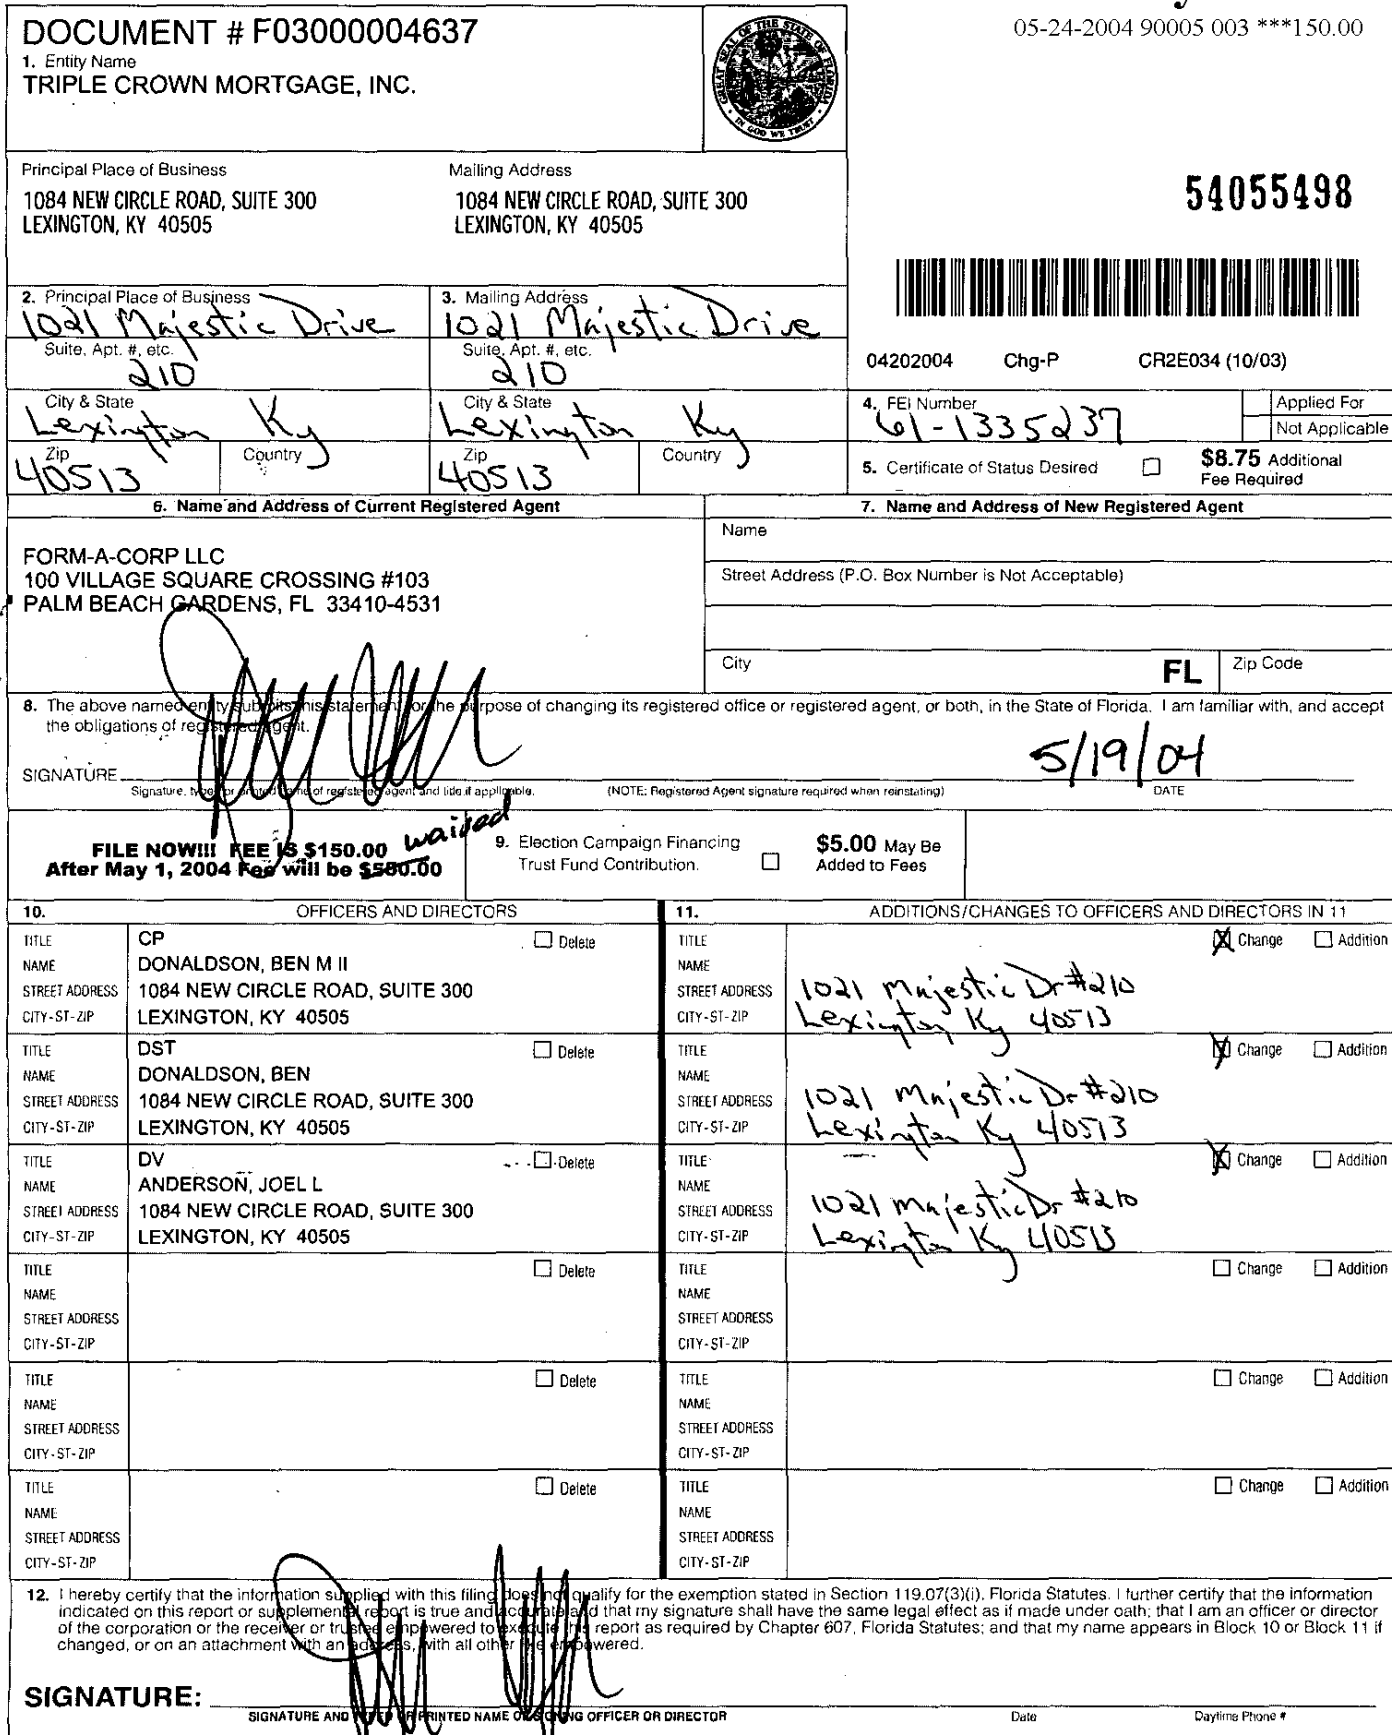 05-24-2004 90005 003 ***150.00
DOCUMENT # F03000004637
1. Entity Name
TRIPLE CROWN MORTGAGE, INC.
GREAT SEAL OF THE STATE OF FLORIDA
IN GOD WE TRUST
Principal Place of Business
1084 NEW CIRCLE ROAD, SUITE 300
LEXINGTON, KY 40505
Mailing Address
1084 NEW CIRCLE ROAD, SUITE 300
LEXINGTON, KY 40505
54055498
2. Principal Place of Business
1021 Majestic Drive
Suite, Apt. #, etc.
210
City & State
Lexington Ky
Zip
40513
Country
3. Mailing Address
1021 Majestic Drive
Suite, Apt. #, etc.
210
City & State
Lexington Ky
Zip
40513
Country
04202004 Chg-P CR2E034 (10/03)
4. FEI Number
61-1335237
Applied For
Not Applicable
5. Certificate of Status Desired
$8.75 Additional
Fee Required
6. Name and Address of Current Registered Agent
FORM-A-CORP LLC
100 VILLAGE SQUARE CROSSING #103
PALM BEACH GARDENS, FL 33410-4531
7. Name and Address of New Registered Agent
Name
Street Address (P.O. Box Number is Not Acceptable)
City
FL
Zip Code
8. The above named entity submits this statement for the purpose of changing its registered office or registered agent, or both, in the State of Florida. I am familiar with, and accept
the obligations of registered agent.
SIGNATURE
5/19/04
Signature, typed or printed name of registered agent and title if applicable.
(NOTE: Registered Agent signature required when reinstating)
DATE
FILE NOW!!! FEE IS $150.00
waived
After May 1, 2004 Fee will be $550.00
9. Election Campaign Financing
Trust Fund Contribution.
$5.00 May Be
Added to Fees
10. OFFICERS AND DIRECTORS
TITLE CP Delete
NAME DONALDSON, BEN M II
STREET ADDRESS 1084 NEW CIRCLE ROAD, SUITE 300
CITY-ST-ZIP LEXINGTON, KY 40505
TITLE DST Delete
NAME DONALDSON, BEN
STREET ADDRESS 1084 NEW CIRCLE ROAD, SUITE 300
CITY-ST-ZIP LEXINGTON, KY 40505
TITLE DV Delete
NAME ANDERSON, JOEL L
STREET ADDRESS 1084 NEW CIRCLE ROAD, SUITE 300
CITY-ST-ZIP LEXINGTON, KY 40505
TITLE Delete
NAME
STREET ADDRESS
CITY-ST-ZIP
TITLE Delete
NAME
STREET ADDRESS
CITY-ST-ZIP
TITLE Delete
NAME
STREET ADDRESS
CITY-ST-ZIP
11. ADDITIONS/CHANGES TO OFFICERS AND DIRECTORS IN 11
TITLE X Change Addition
NAME
STREET ADDRESS 1021 Majestic Dr #210
CITY-ST-ZIP Lexington Ky 40513
TITLE X Change Addition
NAME
STREET ADDRESS 1021 Majestic Dr #210
CITY-ST-ZIP Lexington Ky 40513
TITLE X Change Addition
NAME
STREET ADDRESS 1021 Majestic Dr #210
CITY-ST-ZIP Lexington Ky 40513
TITLE Change Addition
NAME
STREET ADDRESS
CITY-ST-ZIP
TITLE Change Addition
NAME
STREET ADDRESS
CITY-ST-ZIP
TITLE Change Addition
NAME
STREET ADDRESS
CITY-ST-ZIP
12. I hereby certify that the information supplied with this filing does not qualify for the exemption stated in Section 119.07(3)(i), Florida Statutes. I further certify that the information
indicated on this report or supplemental report is true and accurate and that my signature shall have the same legal effect as if made under oath; that I am an officer or director
of the corporation or the receiver or trustee empowered to execute this report as required by Chapter 607, Florida Statutes; and that my name appears in Block 10 or Block 11 if
changed, or on an attachment with an address, with all other like empowered.
SIGNATURE:
SIGNATURE AND TYPED OR PRINTED NAME OF SIGNING OFFICER OR DIRECTOR
Date
Daytime Phone #